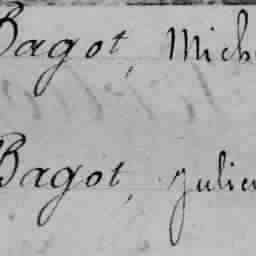 Bagot, Mich
Bagot, Julien